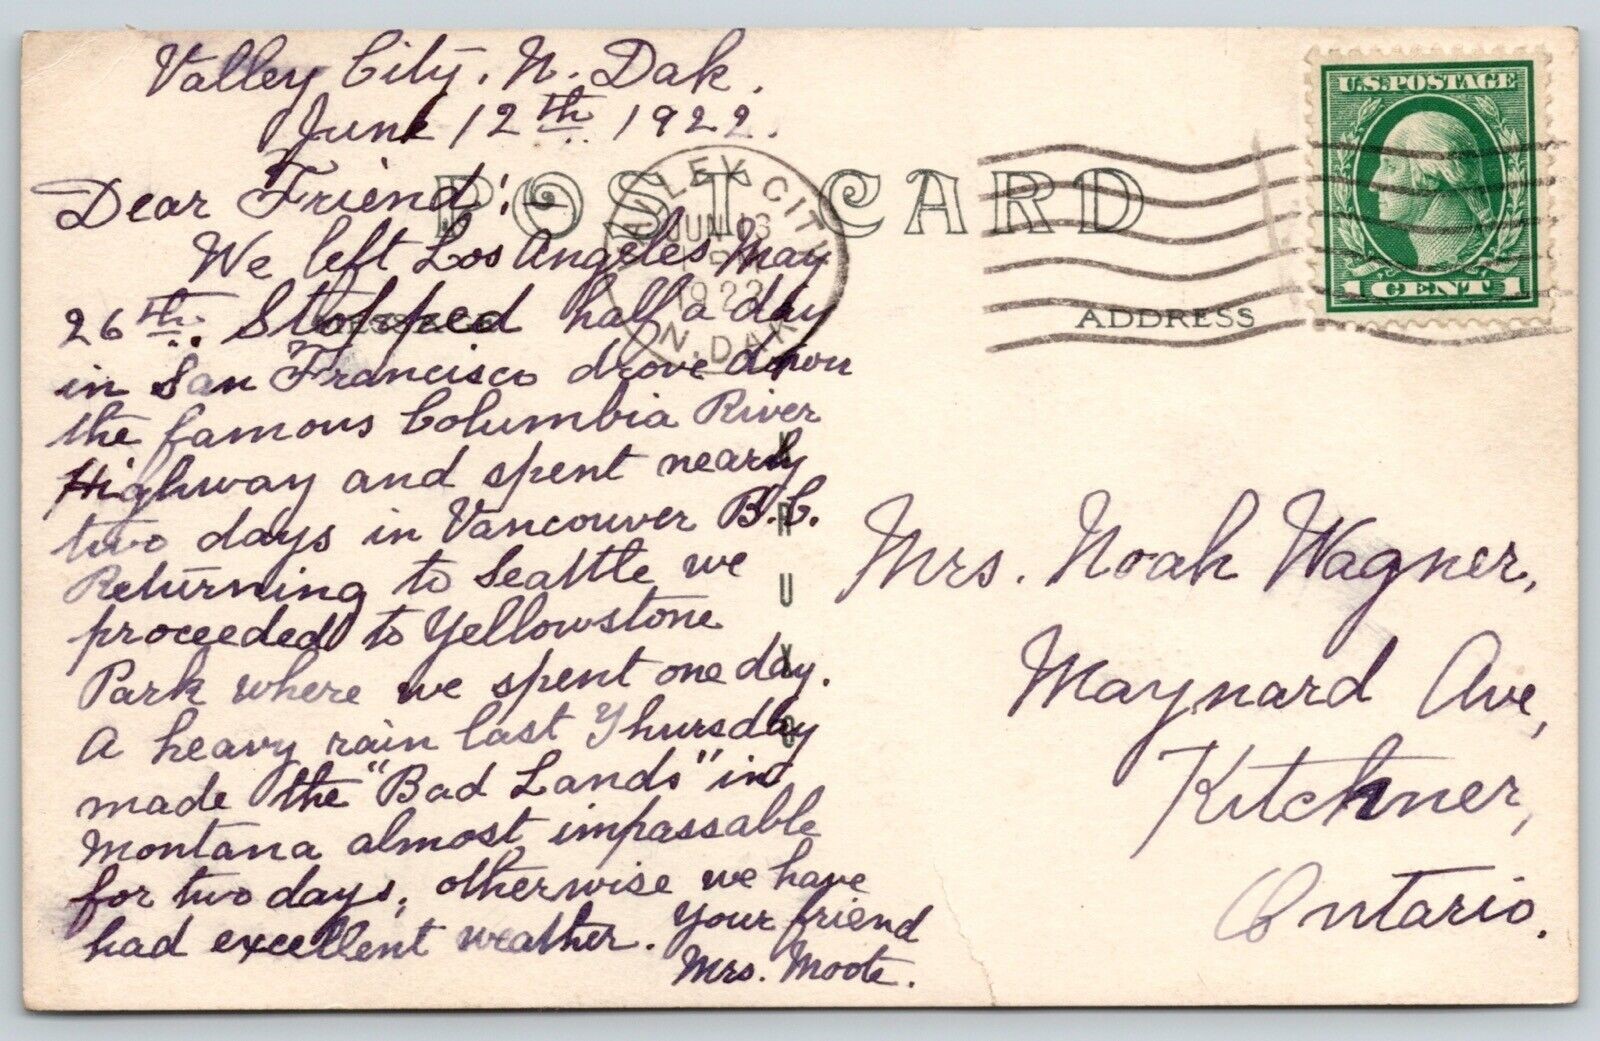 Valley City, N. Dak.
June 12th. 1922.
Dear Friend:—
We left Los Angeles May
26th. Stopped half a day
in San Francisco drove down
the famous Columbia River
Highway and spent nearly
two days in Vancouver B.C.
Returning to Seattle we
proceeded to Yellowstone
Park where we spent one day.
A heavy rain last Thursday
made the "Bad Lands" in
Montana almost impassable
for two days, otherwise we have
had excellent weather. Your friend
Mrs. Moote.
POST CARD
VALLEY CITY
JUN 13
1922
N. DAK.
U.S. POSTAGE
1 CENT 1
ADDRESS
Mrs. Noah Wagner,
Maynard Ave,
Kitchner,
Ontario.